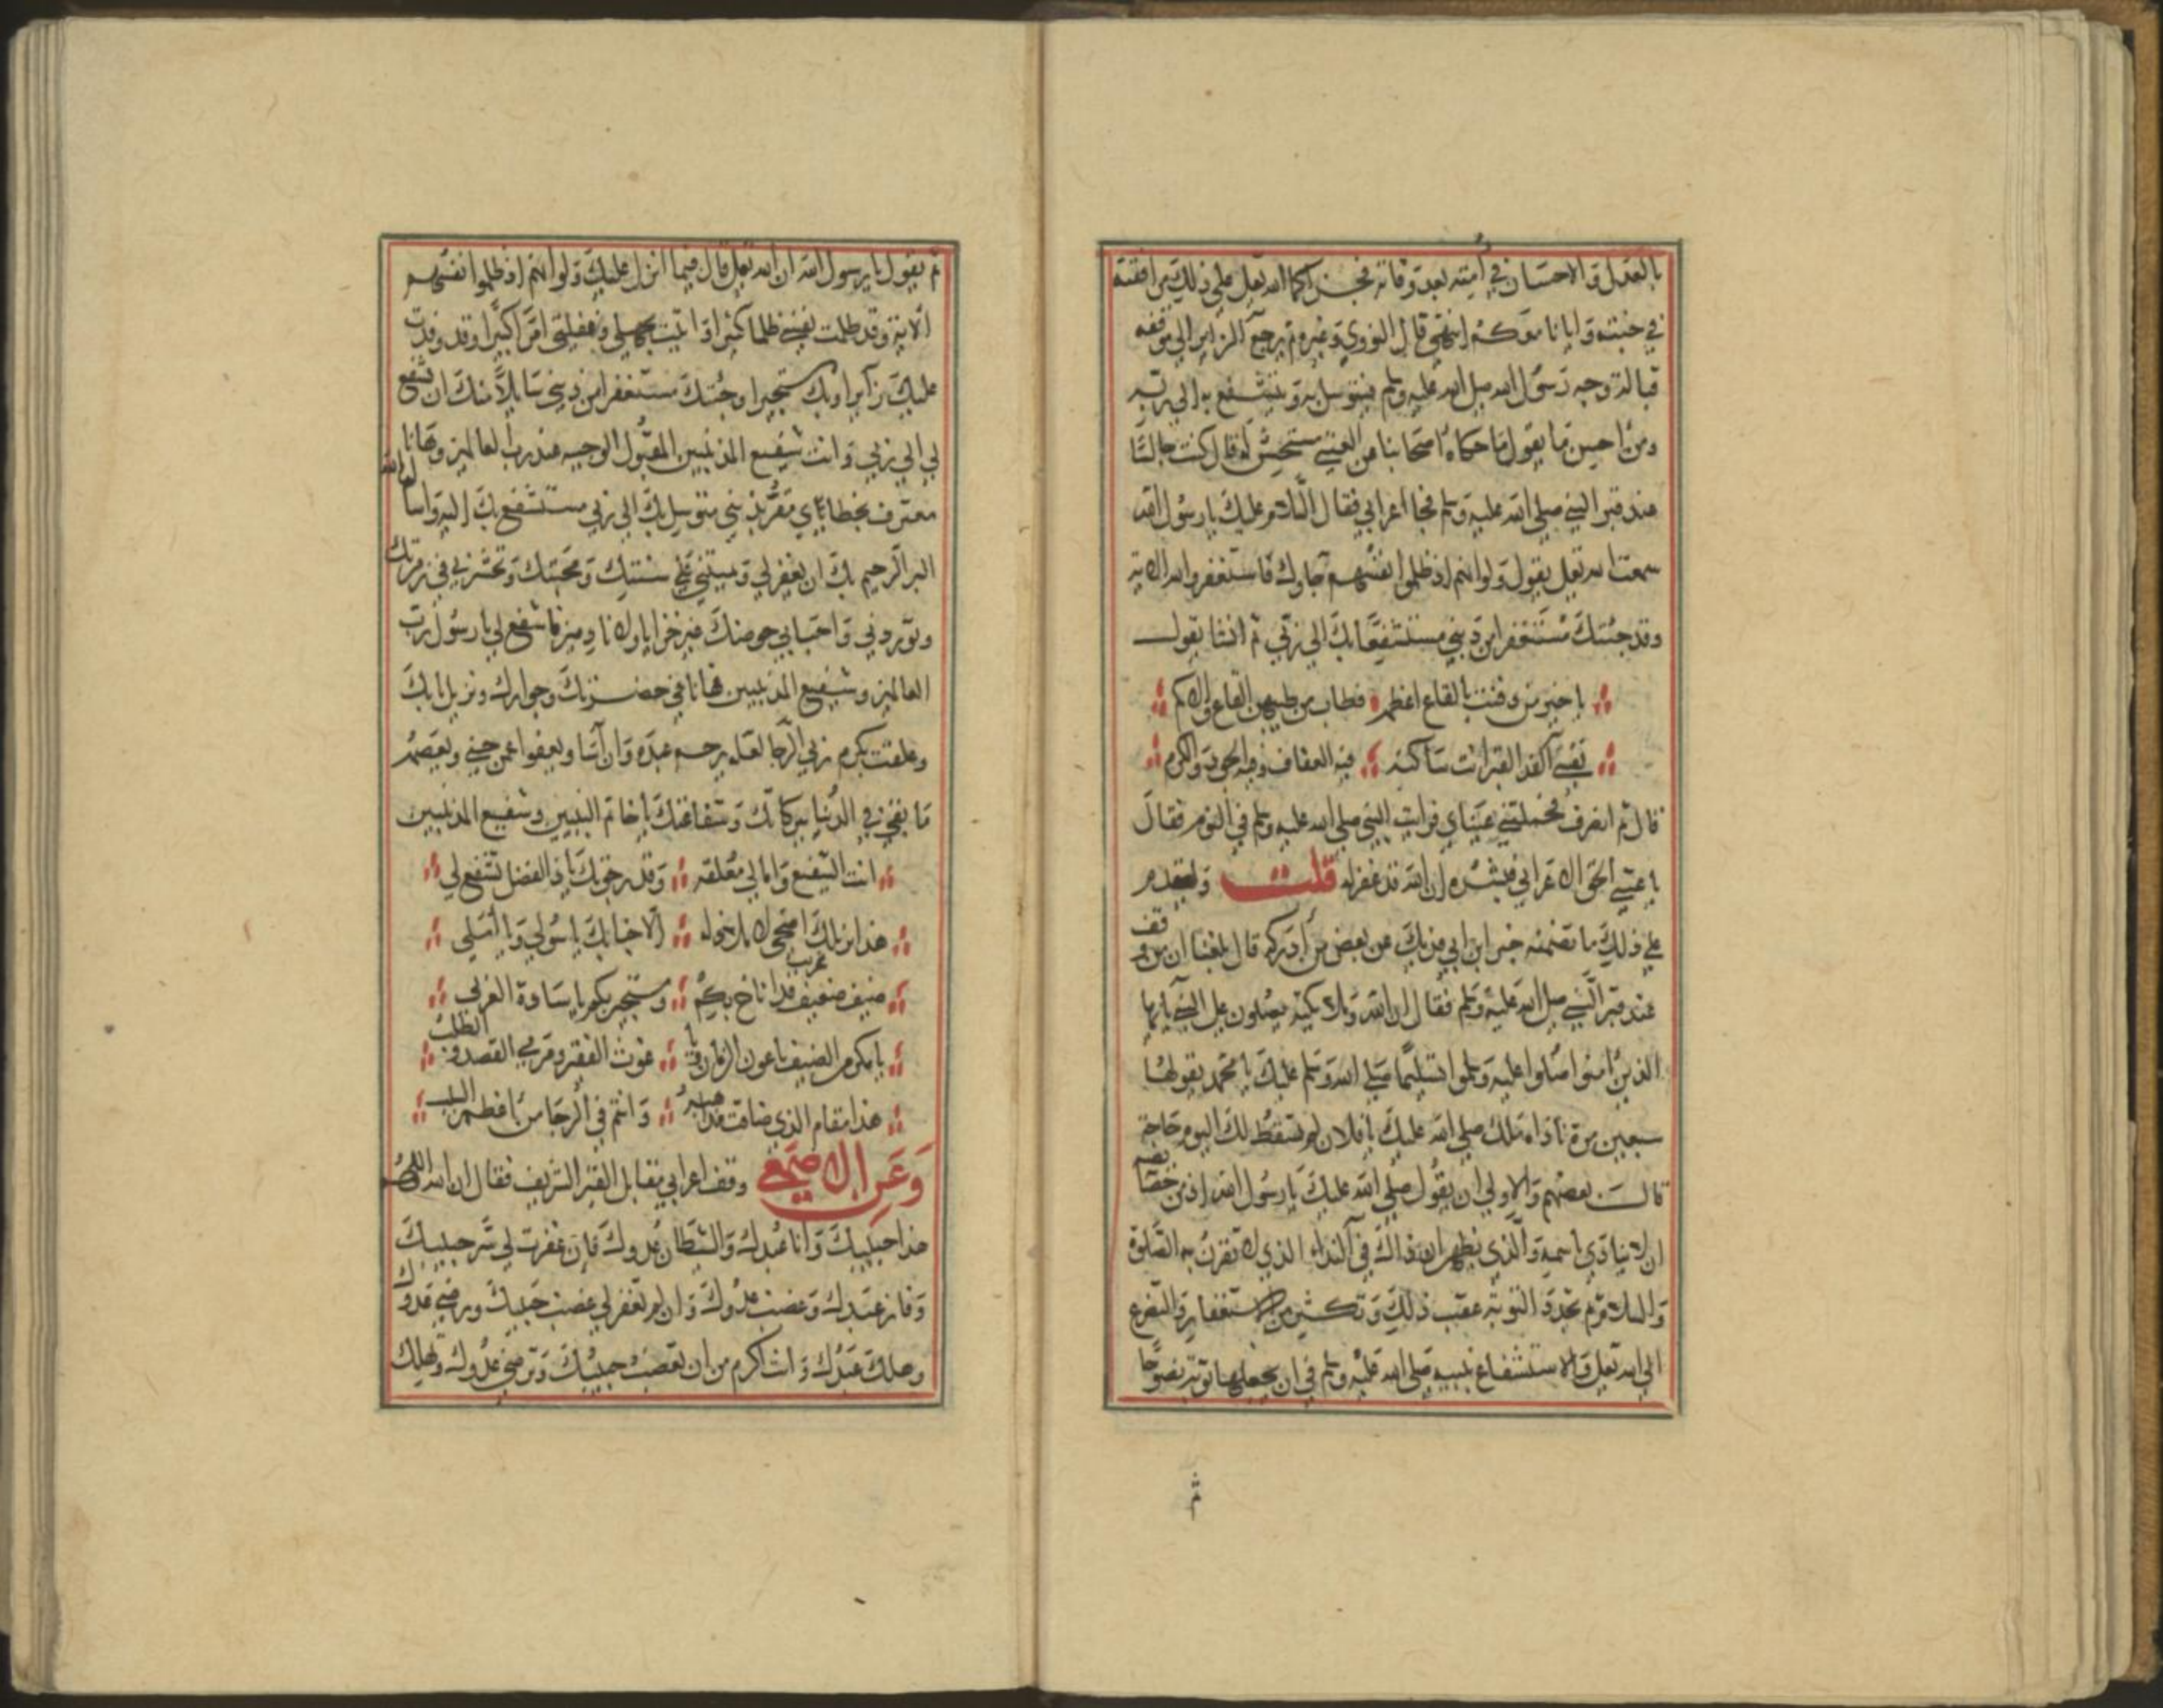 بالعدل والاحسان في امته بعد وفاته فجزاكما الله تعلى على ذلك مرافقته
في جنته وايانا معكم انتهى قال النووي وغيره ثم يرجع الزاير الى موقفه
قبالة وجه رسول الله صلى الله عليه وسلم فيتوسل به ويتشفع به الى ربه
ومن احسن ما يقول ما حكاه اصحابنا عن العتبي مستحسنين له قال كنت جالسا
عند قبر النبي صلى الله عليه وسلم فجا اعرابي فقال السلام عليك يا رسول الله
سمعت الله تعلى يقول ولو انهم اذ ظلموا انفسهم جاوك فاستغفروا الله الاية
وقد جئتك مستغفرا من ذنبي مستشفعا بك الى ربي ثم انشا يقول
يا خير من دفنت بالقاع اعظمه فطاب من طيبهن القاع والاكم
نفسي الفدا لقبر انت ساكنه فيه العفاف وفيه الجود والكرم
قال ثم انصرف فحملتني عيناي فرايت النبي صلى الله عليه وسلم في النوم فقال
يا عتبي الحق الاعرابي فبشره ان الله قد غفر له قلت وليقدم
على ذلك ما تضمنه خبر ابن ابي فديك عن بعض من ادركه قال بلغنا ان من وقف
عند قبر النبي صلى الله عليه وسلم فقال ان الله وملائكته يصلون على النبي يا ايها
الذين امنوا صلوا عليه وسلموا تسليما صلى الله وسلم عليك يا محمد يقولها
سبعين مرة ناداه ملك صلى الله عليك يا فلان لم تسقط لك اليوم حاجة
قالــ بعضهم والاولى ان يقول صلى الله عليك يا رسول الله اذ من خصايصه
ان لا ينادى باسمه والذي يظهر ان ذاك في النداء الذي لا تقترن به الصلوة
والسلام ثم يجدد التوبة عقب ذلك وتكثير من الاستغفار والتضرع
الى الله تعلى والاستشفاع بنبيه صلى الله عليه وسلم في ان يجعلها توبة نصوحا
ثم
ثم يقول يا رسول الله ان الله تعلى قال فيما انزل عليك ولو انهم اذ ظلموا انفسهم
الاية وقد ظلمت نفسي ظلما كثيرا واتيت بجهلي وغفلتي امرا كبيرا وقد وفدت
عليك زايرا وبك مستجيرا وجئتك مستغفرا من ذنبي سايلا منك ان تشفع
لي الى ربي وانت شفيع المذنبين المقبول الوجيه عند رب العالمين وها انا
معترف بخطاياي مقر بذنبي متوسل بك الى ربي مستشفع بك اليه واسأل الله
البر الرحيم بك ان يغفر لي ويميتني على سنتك ومحبتك وتحشرني في زمرتك
ويوردني واحبابي حوضك غير خزايا ولا نادمين فاشفع لي يا رسول رب
العالمين وشفيع المذنبين فها انا في حضرتك وجوارك ونزيل بابك
وعلقت بكرم ربي الرجا لعله يرحم عبده وان اسا ويعفوا عمن جنى ويعصم
ما بقي في الدنيا ببركاتك وشفاعتك يا خاتم النبيين وشفيع المذنبين
انت الشفيع وامالي معلقه وقد رجوتك يا ذا الفضل تشفع لي
هذا نزيلك اضحى لا ملاذ له الا جنابك يا سولي ويا املي
ضيف ضعيف غريب قد اناخ بكم ومستجير بكم يا سادة العرب
يا مكرم الضيف يا عون الزمان ويا غوث الفقير ومرمى القصد والطلب
هذا مقام الذي ضاقت مذاهبه وانتم في الرجا من اعظم السبب
وعن الاصمعي وقف اعرابي مقابل القبر الشريف فقال ان الله اللهم
هذا حبيبك وانا عبدك والشيطان عدوك فان غفرت لي سر حبيبك
وفاز عبدك وغضب عدوك وان لم تغفر لي غضب حبيبك ورضي عدوك
وهلك عبدك وانت اكرم من ان تغضب حبيبك وترضي عدوك وتهلك